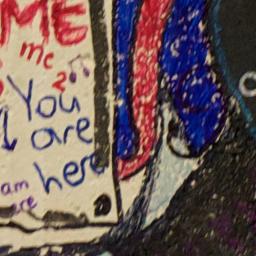 ME
me
You
are
here
am